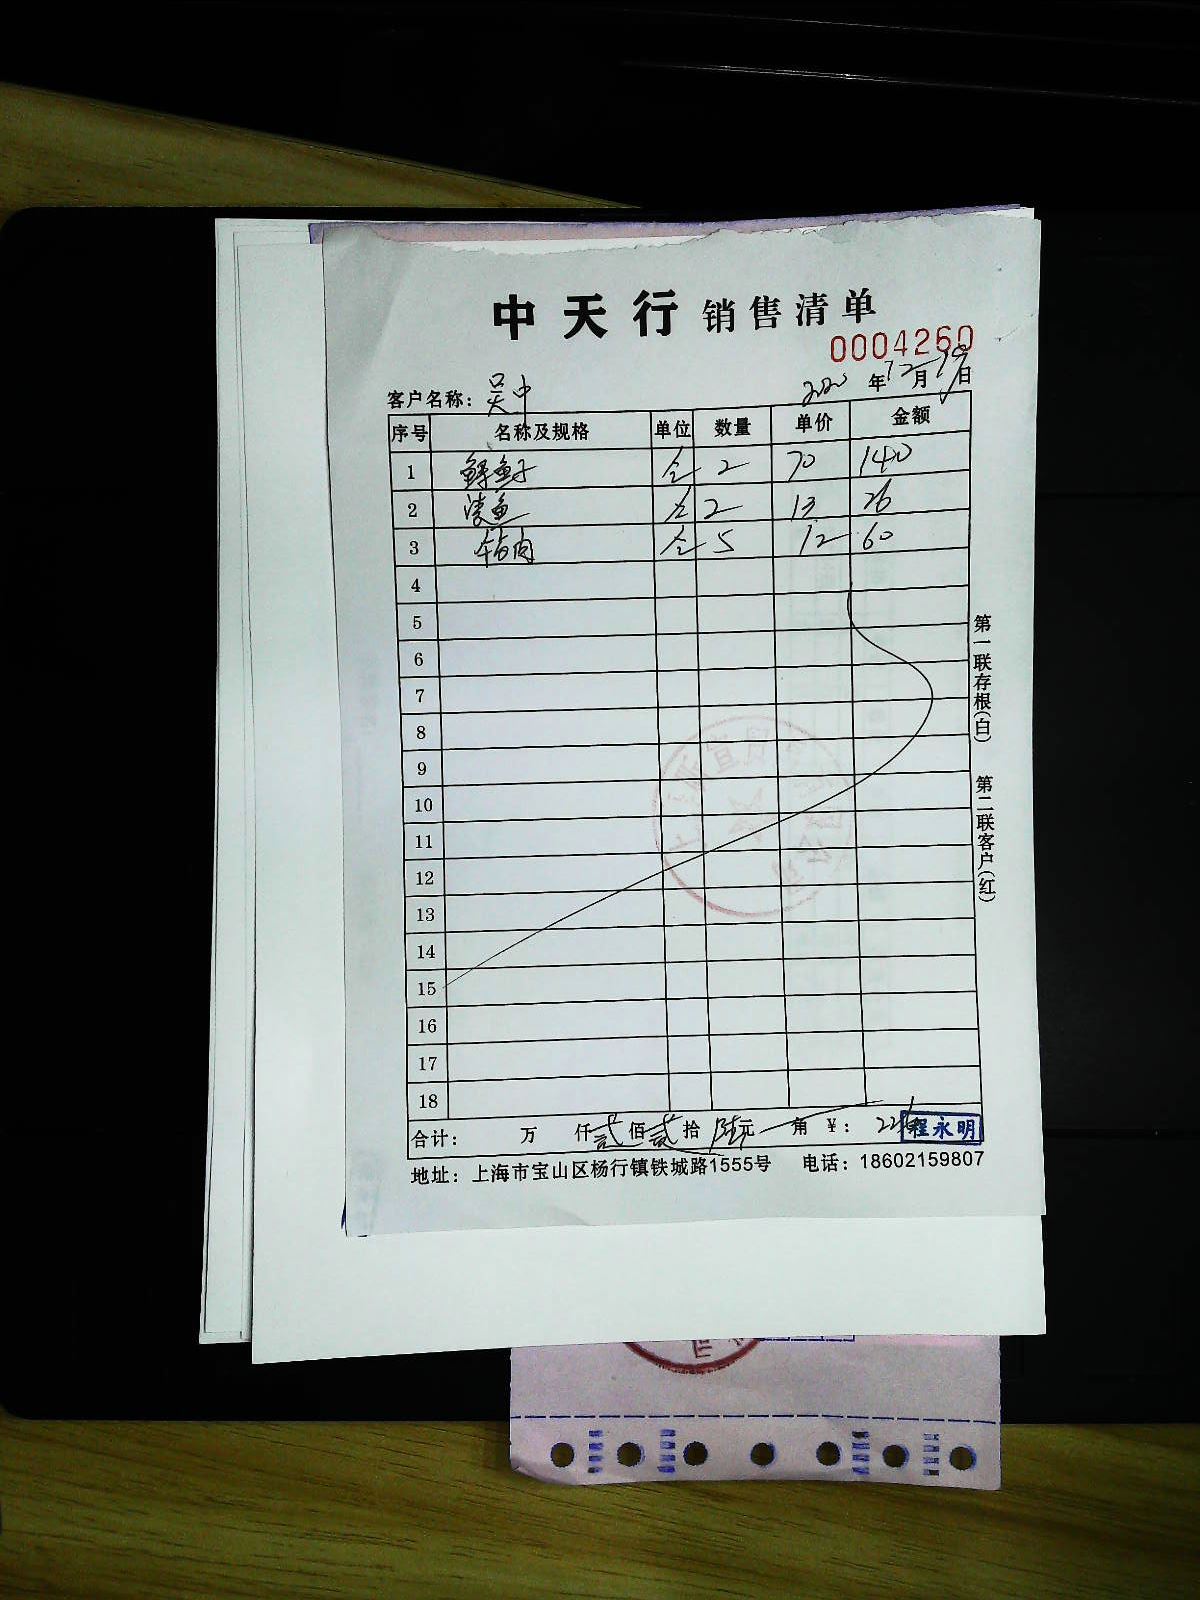 中天行 销售清单
0004260
2020 年 12 月 19 日
客户名称： 吴中
序号 名称及规格 单位 数量 单价 金额
1 2 70 140
2 鱼 2 13 26
3 5 12 60
4
5
6
7
8
9
10
11
12
13
14
15
16
17
18
合计： 万 仟 贰 佰 贰 拾 陆 元 角 ￥： 226
程永明
地址：上海市宝山区杨行镇铁城路1555号 电话：18602159807
第一联存根(白) 第二联客户(红)